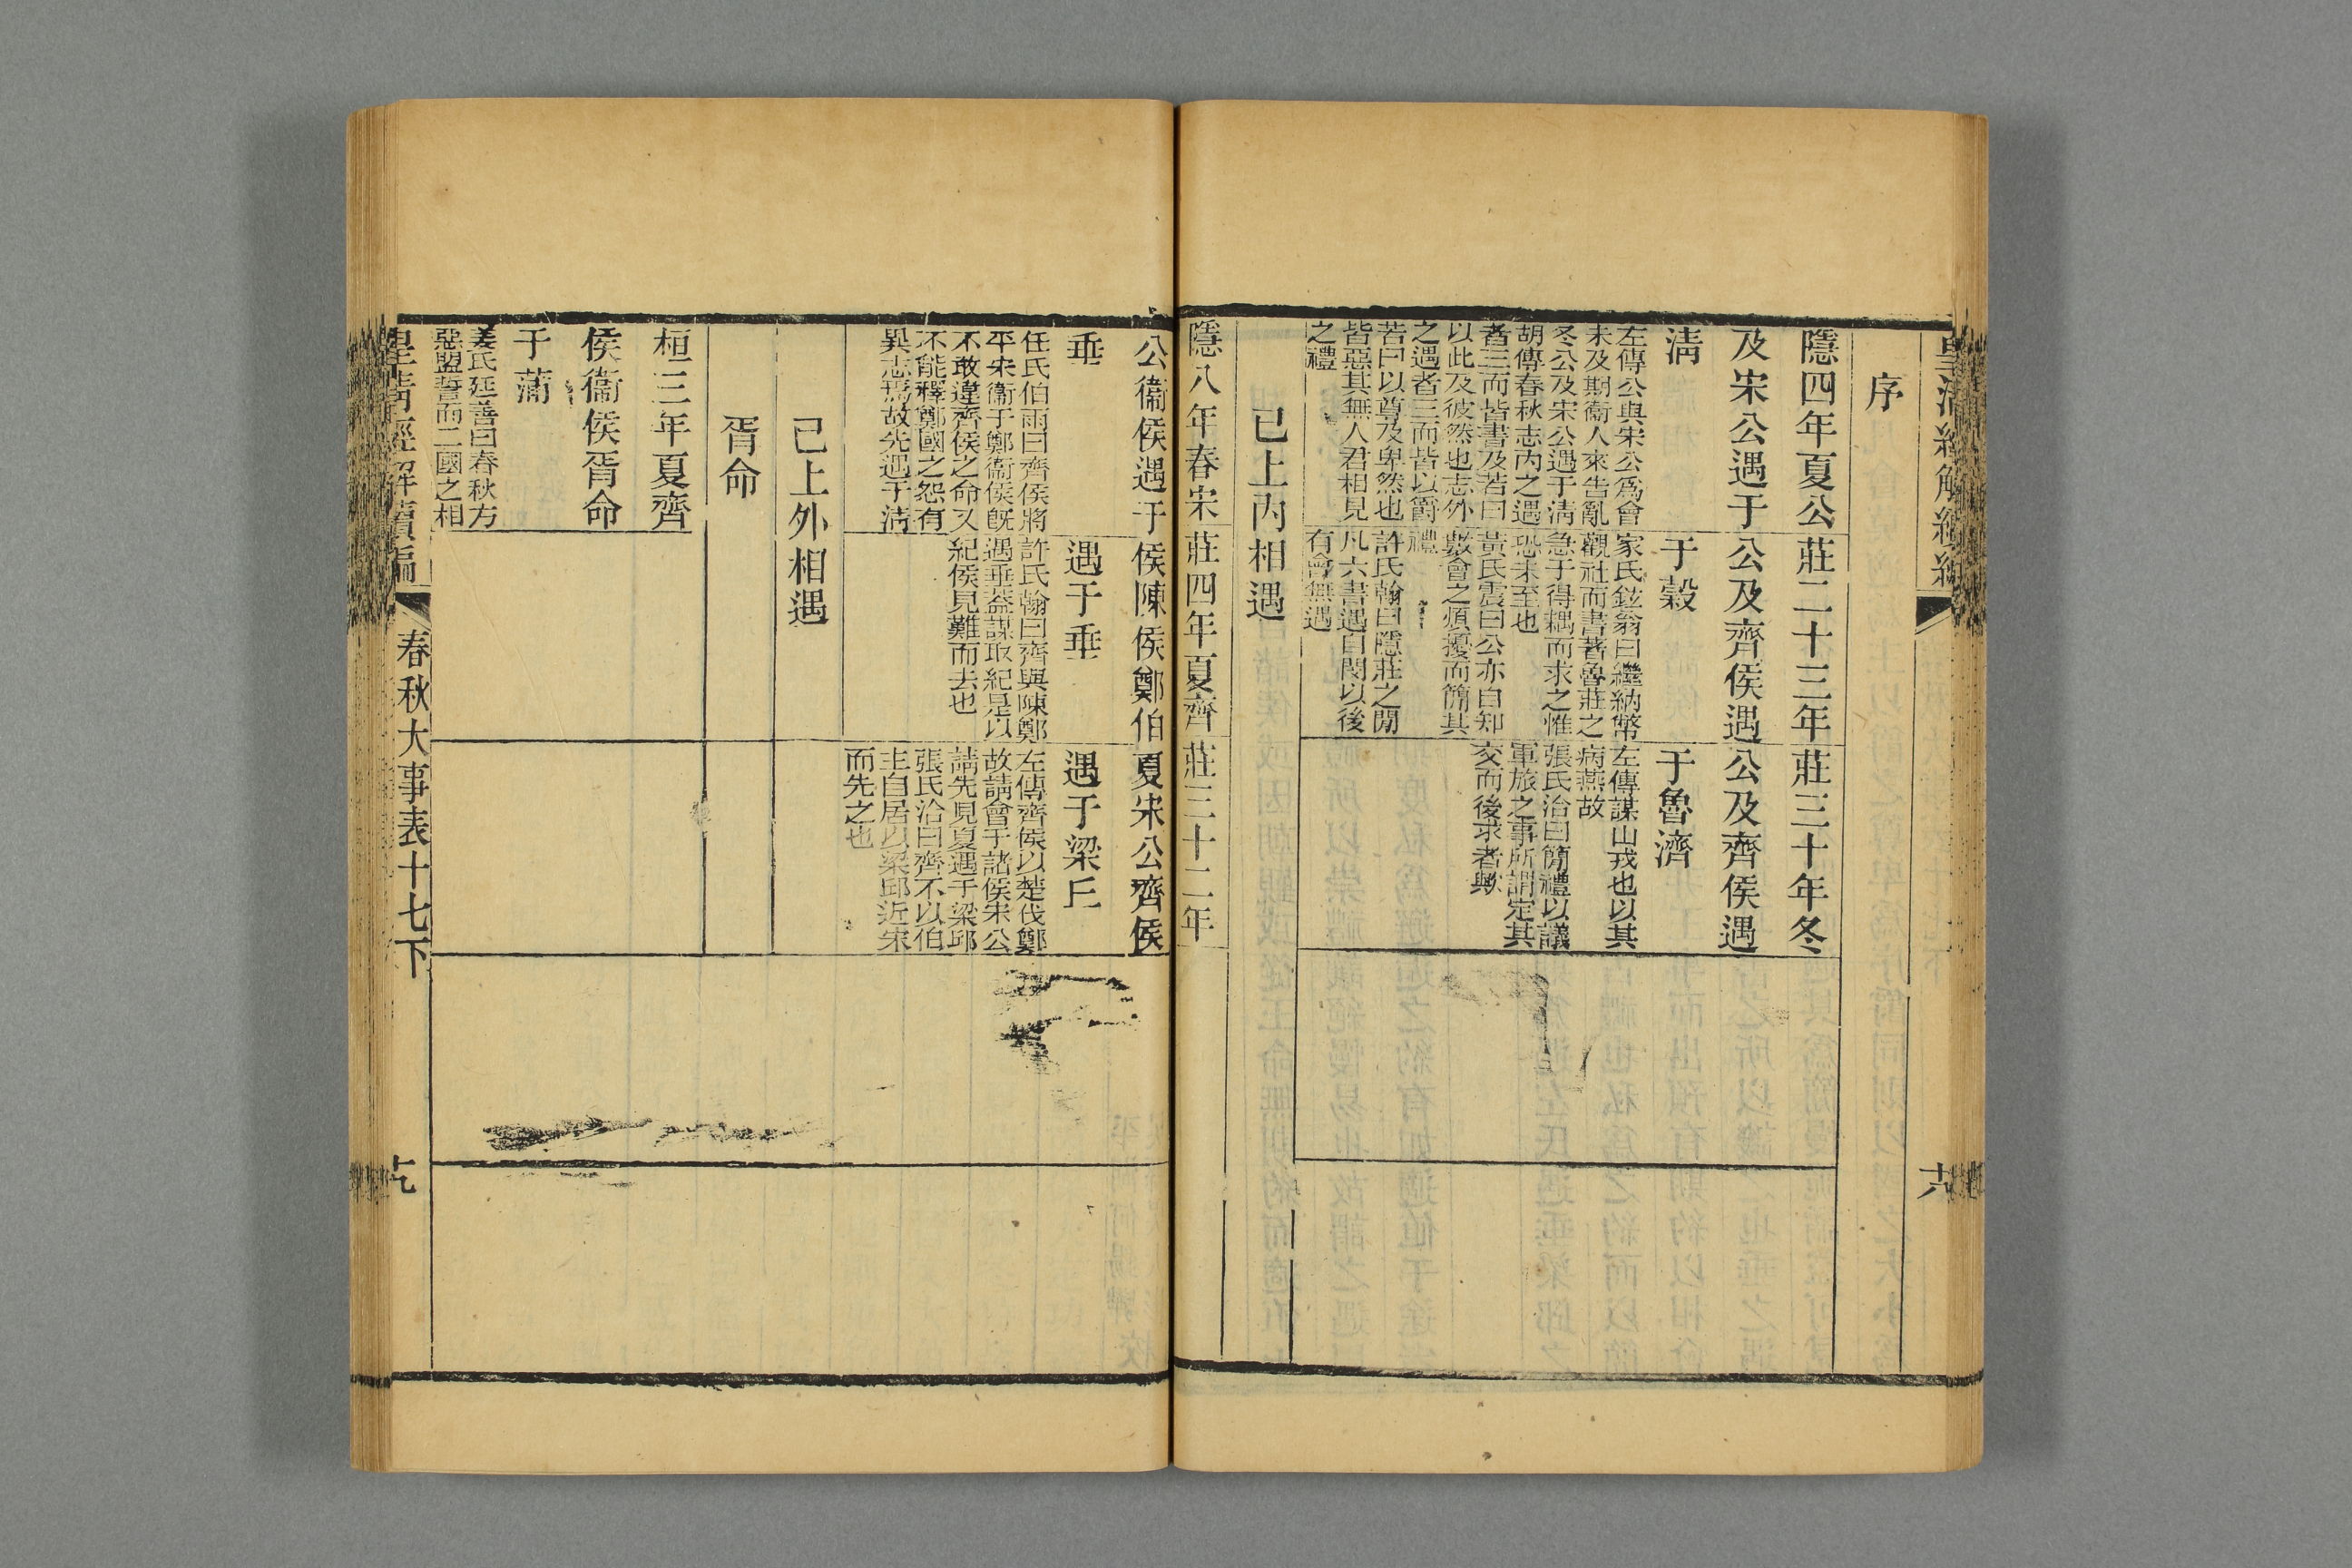 皇清經解續編
六
序
隱四年夏公
及宋公遇于
清
左傳公與宋公爲會
未及期衞人來告亂
冬公及宋公遇于清
胡傳春秋志內之遇
者三而皆書及若曰
以此及彼然也志外
之遇者三而皆以爵
若曰以尊及卑然也
皆惡其無人君相見
之禮
莊二十三年
公及齊侯遇
于穀
家氏鉉翁曰繼納幣
觀社而書著魯莊之
急于得耦而求之惟
恐未至也
黃氏震曰公亦自知
數會之煩擾而簡其
禮
許氏翰曰隱莊之閒
凡六書遇自閔以後
有會無遇
莊三十年冬
公及齊侯遇
于魯濟
左傳謀山戎也以其
病燕故
張氏洽曰簡禮以議
軍旅之事所謂定其
交而後求者歟
已上內相遇
隱八年春宋
公衞侯遇于
垂
任氏伯雨曰齊侯將
平宋衞于鄭衞侯旣
不敢違齊侯之命又
不能釋鄭國之怨有
異志焉故先遇于清
莊四年夏齊
侯陳侯鄭伯
遇于垂
許氏翰曰齊與陳鄭
遇垂蓋謀取紀是以
紀侯見難而去也
莊三十二年
夏宋公齊侯
遇于梁丘
左傳齊侯以楚伐鄭
故請會于諸侯宋公
請先見夏遇于梁邱
張氏洽曰齊不以伯
主自居以梁邱近宋
而先之也
已上外相遇
胥命
桓三年夏齊
侯衞侯胥命
于蒲
姜氏廷善曰春秋方
惡盟誓而二國之相
皇清經解續編
春秋大事表十七下